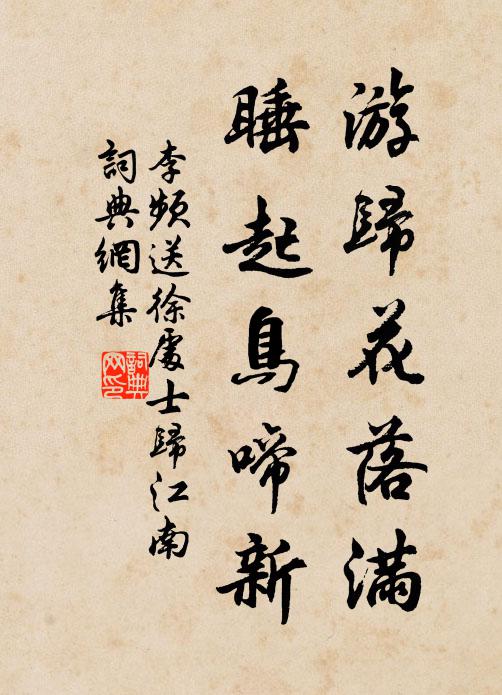 游歸花落滿
睡起鳥啼新
李頻送徐處士歸江南
詞典網集
詞典網印